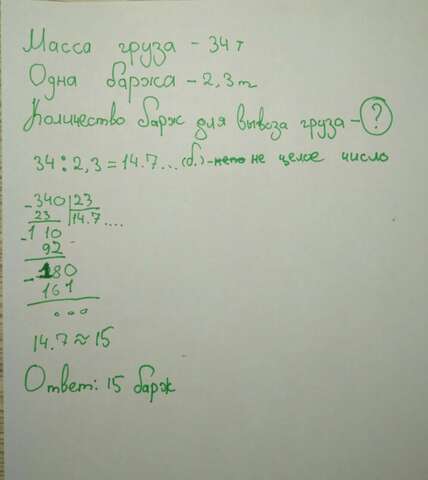 Масса груза - 34 т
Одна баржа - 2,3 т
Количество барж для вывоза груза - ?
34 : 2,3 = 14.7... (б.) - не целое число
- 340 | 23
23 | 14.7....
- 1 10
92
- 180
161
...
14.7 ≈ 15
Ответ: 15 барж